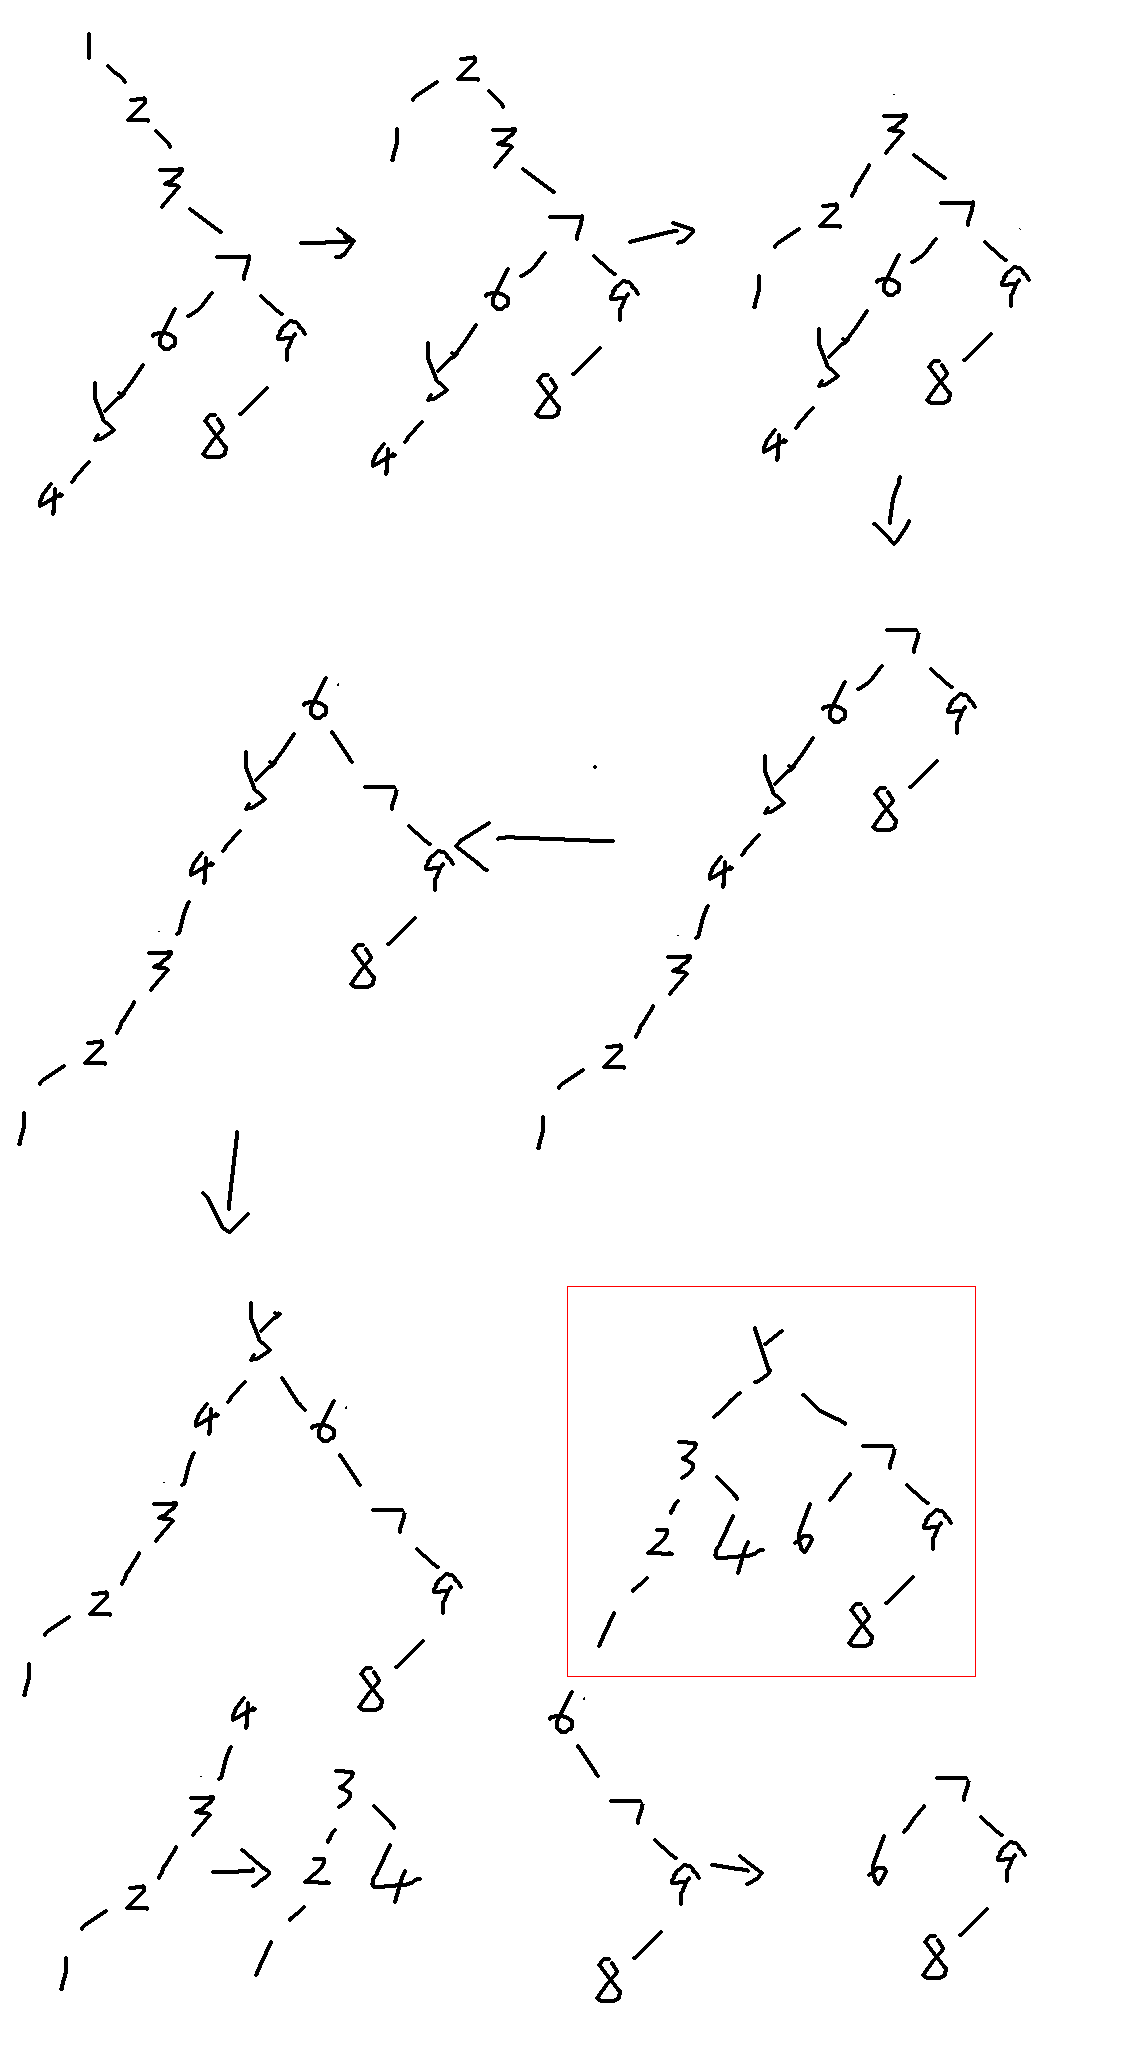 1
2
3
7
6 9
5 8
4
2
1 3
7
6 9
5 8
4
3
2 7
1 6 9
5 8
4
7
6 9
5 8
4
3
2
1
6
5 7
4 9
3 8
2
1
5
4 6
3 7
2 9
1 8
5
3 7
2 4 6 9
1 8
4
3
2
1
3
2 4
1
6
7
9
8
7
6 9
8